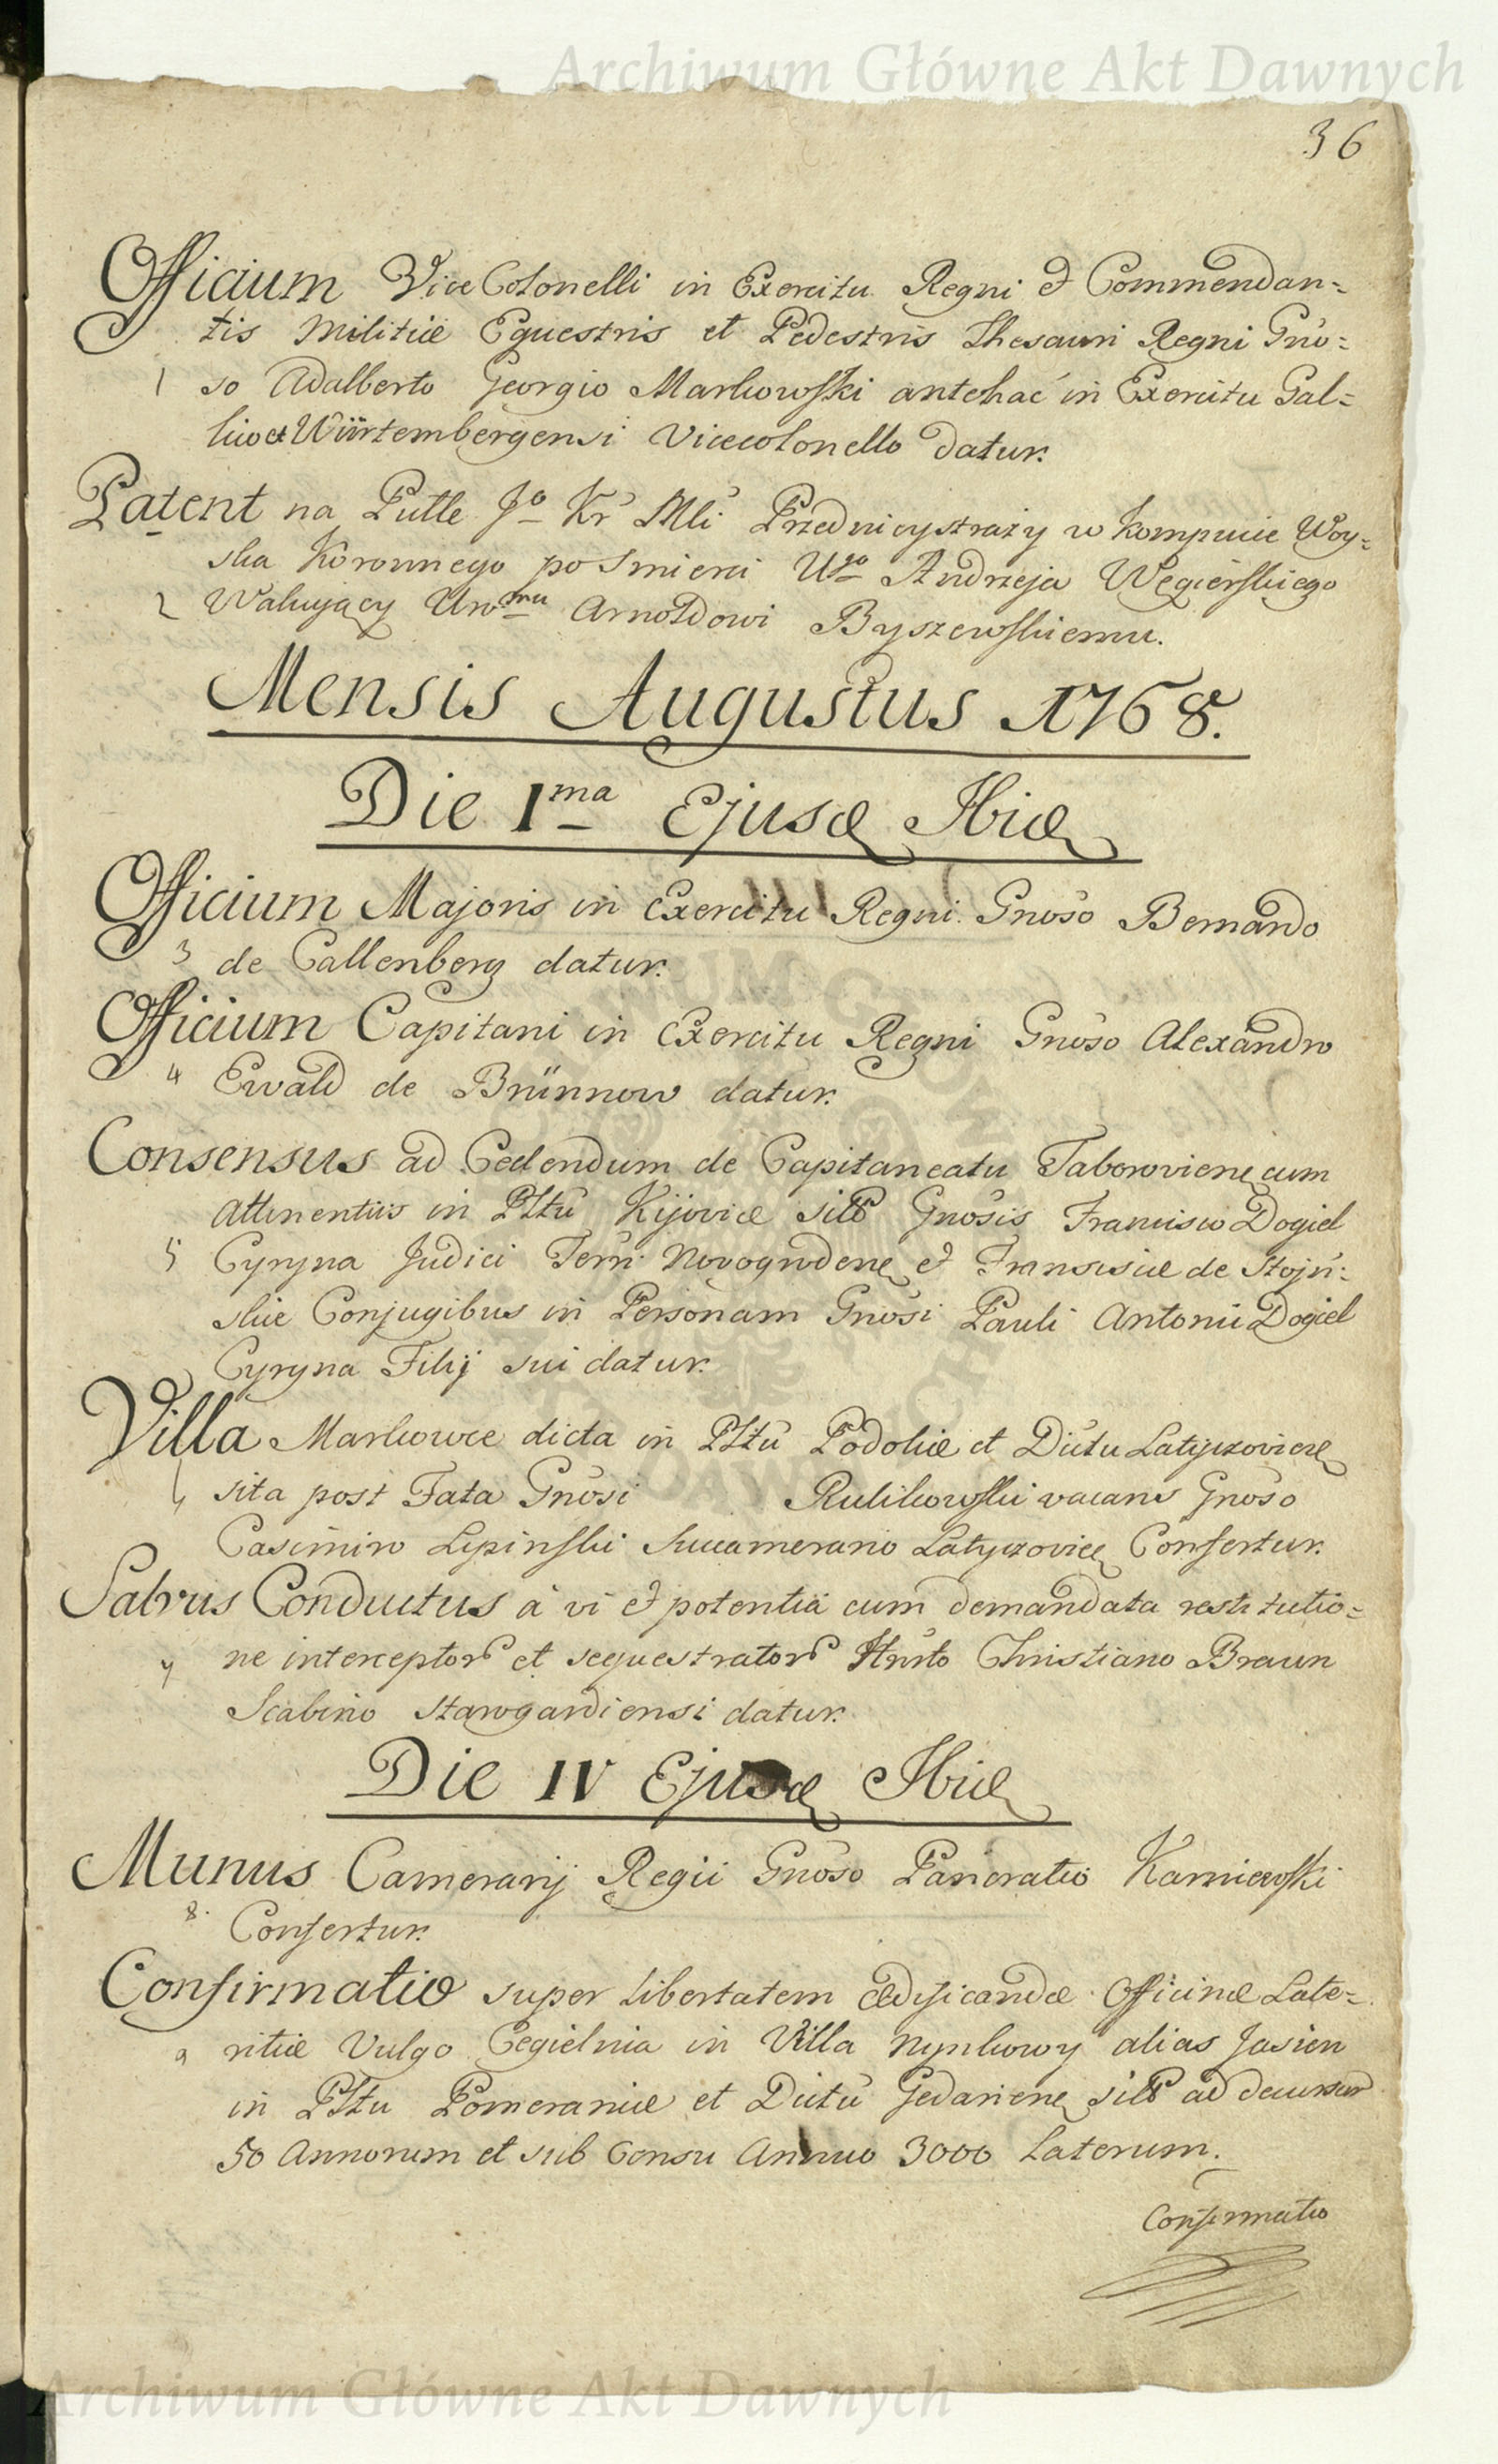 Archiwum Główne Akt Dawnych
36
Officium ViceColonelli in Exercitu Regni et Commendan=
tis Militiæ Equestris et Pedestris Thesauri Regni Gno=
1 so Adalberto Georgio Markowski antehac in Exercitu Gal=
lico et Würtembergensi Vicecolonello datur.
Patent na Pułk Jo Kr Mci Przedniey straży w kompucie Woy=
ska Koronnego po Smierci Ugo Andrzeja Węgierskiego
2 Wakujący Urmu Arnoldowi Byszewskiemu.
Mensis Augustus 1768.
Die 1ma Ejusd Ibid
Officium Majoris in Exercitu Regni Gnoso Bernardo
3 de Callenberg datur.
Officium Capitani in Exercitu Regni Gnoso Alexandro
4 Ewald de Brünnow datur.
Consensus ad Cedendum de Capitaneatu Taboroviene cum
attinentiis in Pltu Kijoviæ sito Gnosis Francisco Dogiel
5 Cyryna Judici Terri Novogrodene et Franciscæ de Stojń=
skie Conjugibus in Personam Gnosi Pauli Antonii Dogiel
Cyryna Filij sui datur.
Villa Markowce dicta in Pltu Podoliæ et Dictu Latyczoviene
6 sita post Fata Gnosi Rulikowski vacans Gnoso
Casimiro Lipinski Succamerario Latyczovien Confertur.
Salvus Conductus a vi et potentia cum demandata restitutio=
7 ne interceptor et sequestrator Hnsto Christiano Braun
Scabino Stawgardiensi datur.
Die IV Ejusd Ibid
Munus Camerarij Regii Gnoso Pancratio Karniewski
8. Confertur.
Confirmatio super libertatem ædificandæ Officinæ Late=
9 ritiæ Vulgo Cegielnia in Villa Nynkowy alias Jasien
in Pltu Pomeraniæ et Dictu Gedaniene sito ad decursum
50 Annorum et sub Censu Annuo 3000 Laterum.
Confirmatio
Archiwum Główne Akt Dawnych